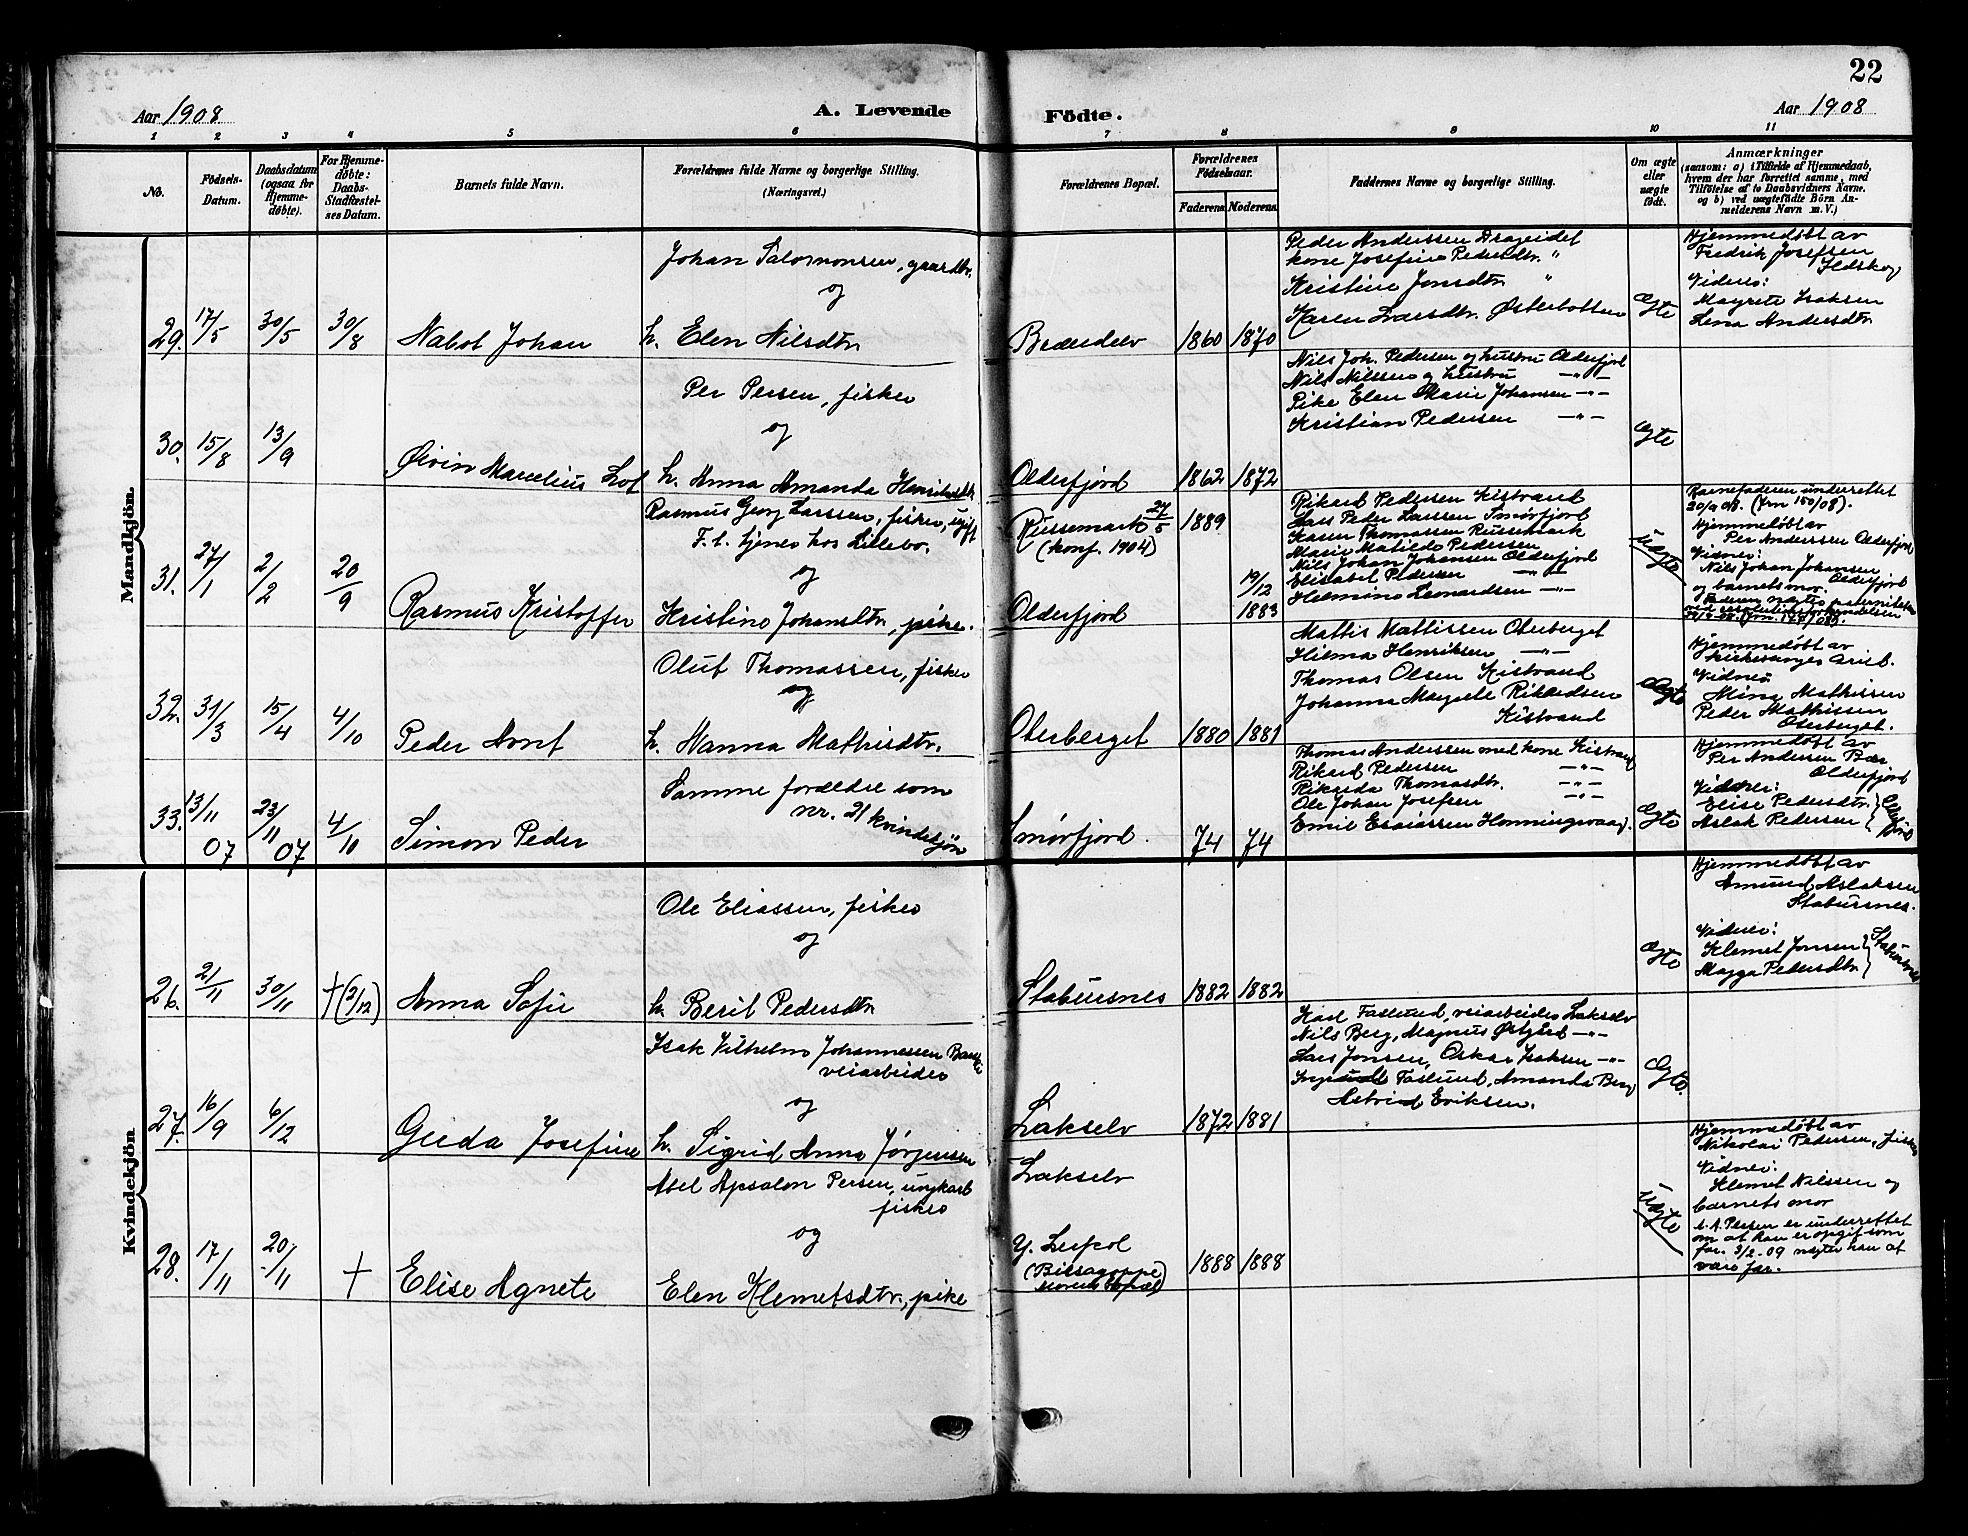 22
Aar 1908
A. Levende
Födte.
Aar 1908
1 2 3 4 5 6 7 8 9 10 11
No.
Födsels-
Datum.
Daabsdatum
(ogsaa for
Hjemme-
döbte).
For Hjemme-
döbte:
Daabs-
Stadfæstel-
ses Datum.
Barnets fulde Navn.
Forældrenes fulde Navne og borgerlige Stilling.
(Næringsvei.)
Forældrenes Bopæl.
Forældrenes
Födselsaar.
Faderens.
Moderens.
Faddernes Navne og borgerlige Stilling.
Om ægte
eller
uægte
födt.
Anmærkninger
(saasom: a) i Tilfælde af Hjemmedaab,
hvem der har forrettet samme, med
Tilföielse af to Daabsvidners Navne.
og b) ved uægtefödte Börn An-
melderens Navn m. V.)
Mandkjön.
29. 17/5 30/5 30/8
Nabot Johan
Johan Salomonsen, gaardbr.
og
h. Elen Nilsdtr
Brændelv 1860 1870
Peder Anderssen Drageidet
kone Josefine Pedersdtr. "
Kristine Jonsdtr "
Karen Larsdtr. Østerbotten
Ægte
Hjemmedøbt av
Fredrik Josefsen
Ildskog
Vidner:
Magrete Isaksen
Lena Andersdtr
30. 15/8 13/9
Øivin Marcelius Lof
Per Persen, fisker
og
h. Anna Amanda Henriksdtr
Olderfjord 1862 1872
Nils Joh. Pedersen og hustru Olderfjord
Nils Nilssen og hustru -"-
Pike Elen Marie Johansen -"-
Kristian Pedersen -"-
Ægte
31. 27/1 2/2 20/9
Rasmus Kristoffer
Rasmus Georg Larssen, fisker, ugift
F. t. tjener hos Lillebo.
og
Kristine Johansdtr, pike.
Russemark 27/5 1889
(konf. 1904)
Olderfjord 19/12 1883
Rikard Pedersen Kistrand
Lars Peder Larssen Smørfjord
Karen Thomassen Russemark
Marie Matilde Pedersen
Nils Johan Johansen Olderfjord
Elisabet Pedersen -"-
Helmine Leonardsen -"-
Uægte
Barnefaderen underrettet
20/9 08. (Jrn 150/08).
Hjemmedøbt av
Per Anderssen Olderfjord
Vidner:
Nils Johan Johansen
Olderfjord
og barnets mor.
Faderen nægter paterniteten
32. 31/3 15/4 4/10
Peder Arnt
Oluf Thomassen, fisker
og
h. Hanna Mathisdtr.
Oterberget 1880 1881
Mattis Mattissen Oterberget
Hilma Henriksen -"-
Thomas Olsen Kistrand
Johanna Magrete Rikardsen
Kistrand
Ægte
Hjemmedøbt av
kirkesanger Arild.
Vidner
Mina Mathissen
Peder Mathissen
Oterberget.
33. 13/11 07 23/11 07 4/10
Simon Peder
Samme forældre som
nr. 21 kvindekjön
Smørfjord. 74 74
Thomas Anderssen med kone Kistrand
Rikard Pedersen -"-
Rikarda Thomasdtr. -"-
Ole Johan Josefsen -"-
Emil Esaiassen Honningsvaag.
Ægte
Hjemmedøbt av
Per Andersen Bær
Olderfjord
Vidner:
Elise Pedersdtr.
Aslak Pedersen
Kvindekjön
26. 2/11 30/11 †(3/12)
Anna Sofie
Ole Eliassen, fisker
og
h. Berit Pedersdtr
Stabursnes 1882 1882
Ægte
Hjemmedøbt av
Amund Aslaksen
Stabursnes.
Vidner:
Klemet Jonsen
Magga Pedersdtr
Stabursnes
27. 16/9 6/12
Gerda Josefine
Isak Vilhelm Johannessen
veiarbeider
og
h. Sigrid Anna Jørgensen
Lakselv 1872 1881
Karl Faslund, veiarbeider Lakselv
Nils Berg, Magnus Østgård -"-
Lars Jonsen, Oskar Isaksen -"-
Faslund, Amanda Berg
Astrid Eriksen.
Ægte.
28. 17/11 20/11 †
Elise Agnete
Abel Apsalon Persen, ungkarl
fisker
og
Elen Klemetsdtr., pike
Lakselv
Y. Leirpol
(Bissagoppe
morens bopæl)
1888 1888
Uægte
Hjemmedøbt av
Nikolai Pedersen, fisker
Vidner:
Klemet Nilssen og
barnets mor
A. A. Persen er underrettet
om at han er opgit som
far. 3/2-09 nægter han at
være far.